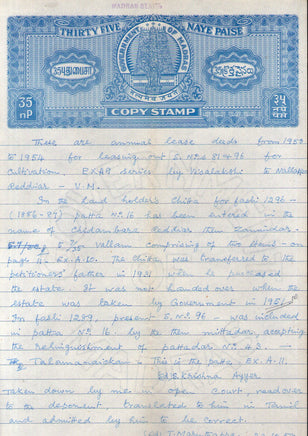 MADRAS STATE
THIRTY FIVE NAYE PAISE
GOVERNMENT OF MADRAS
35
nP
३५
न.पै.
COPY STAMP
These are annual lease deeds from 1950
to 1954 for leasing out S. Nos 81 & 96 for
cultivation. EXAB series by Visalakshi to Nallappa
Reddiar - V.M.
In the land holders Chitta for fasli 1296 -
(1886-87) patta No. 16 has been entered in the
name of Chidambara Reddiar then Zamindar
Vallam comprising of two items - on
page 112 EX.A.10. The Chitta was transferred to (the
petitioners' father in 1931 when he purchased
the estate. It was not handed over when the
estate was taken by Government in 1951
In fasli 1289, present S. Nos. 96 - was included
in patta No. 16. by the then mittadar, accepting
the relinquishment of pattadar No. 43. -
This is the patta EX.A.11.
Sd/S. Krishna Ayyer
taken down by me in open Court, read over
to the deponent, translated to him in Tamil
and admitted by him to be correct.